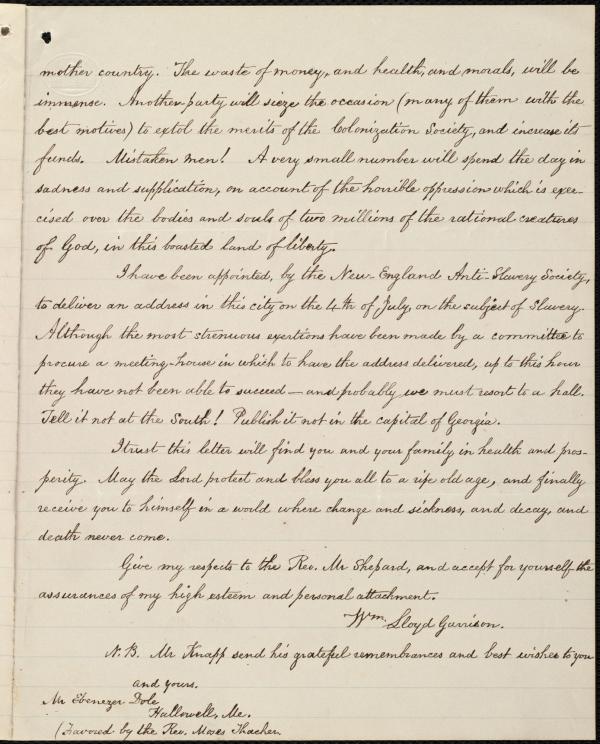 mother country. The waste of money, and health, and morals, will be
immense. Another party will sieze the occasion (many of them with the
best motives) to extol the merits of the Colonization Society, and increase its
funds. Mistaken men! A very small number will spend the day in
sadness and supplication, on account of the horrible oppression which is exer-
cised over the bodies and souls of two millions of the rational creatures
of God, in this boasted land of liberty.
I have been appointed, by the New-England Anti-Slavery Society,
to deliver an address in this city on the 4th of July, on the subject of Slavery.
Although the most strenuous exertions have been made by a committee to
procure a meeting-house in which to have the address delivered, up to this hour
they have not been able to succeed — and probably we must resort to a hall.
Tell it not at the South! Publish it not in the capital of Georgia.
I trust this letter will find you and your family in health and pros-
perity. May the Lord protect and bless you all to a ripe old age, and finally
receive you to himself in a world where change and sickness, and decay, and
death never come.
Give my respects to the Rev. Mr Shepard, and accept for yourself the
assurances of my high esteem and personal attachment.
Wm. Lloyd Garrison.
N.B. Mr Knapp send his grateful remembrances and best wishes to you
and yours.
Mr Ebenezer Dole,
Hallowell, Me.
(Favored by the Rev. Moses Thacher.